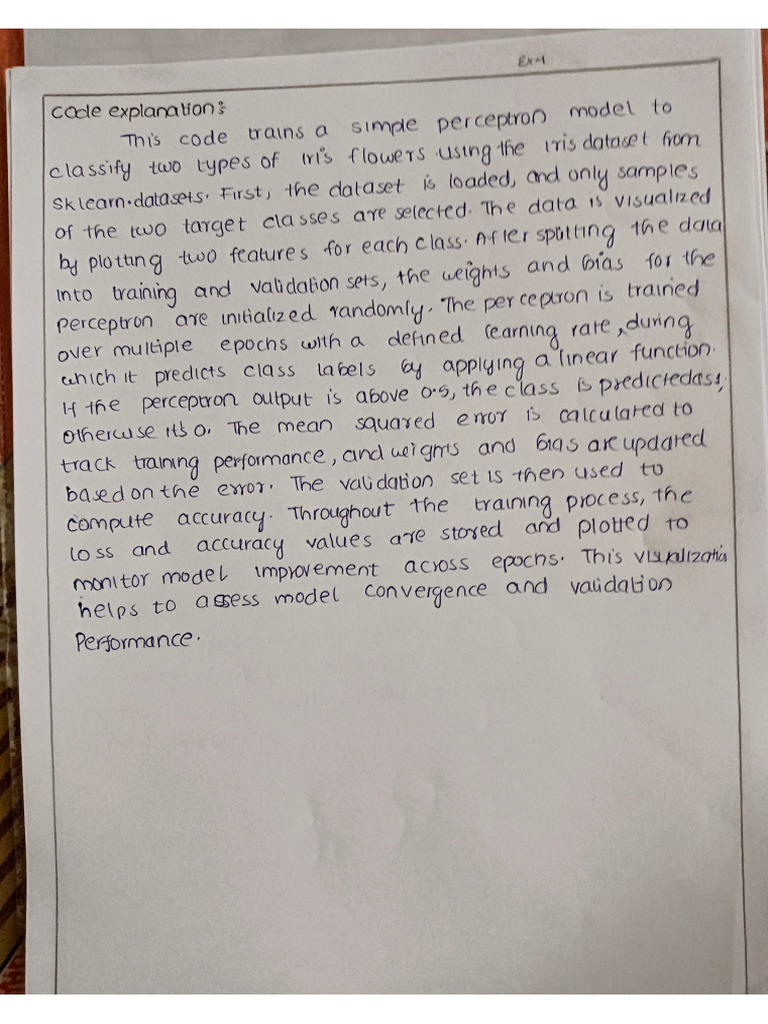 Ex-1
Code explanation:
This code trains a simple perceptron model to
classify two types of iris flowers using the iris dataset from
sklearn.datasets. First, the dataset is loaded, and only samples
of the two target classes are selected. The data is visualized
by plotting two features for each class. After splitting the data
into training and validation sets, the weights and bias for the
perceptron are initialized randomly. The perceptron is trained
over multiple epochs with a defined learning rate, during
which it predicts class labels by applying a linear function.
If the perceptron output is above 0.5, the class is predicted as 1;
otherwise it's 0. The mean squared error is calculated to
track training performance, and weights and bias are updated
based on the error. The validation set is then used to
compute accuracy. Throughout the training process, the
loss and accuracy values are stored and plotted to
monitor model improvement across epochs. This visualization
helps to assess model convergence and validation
Performance.